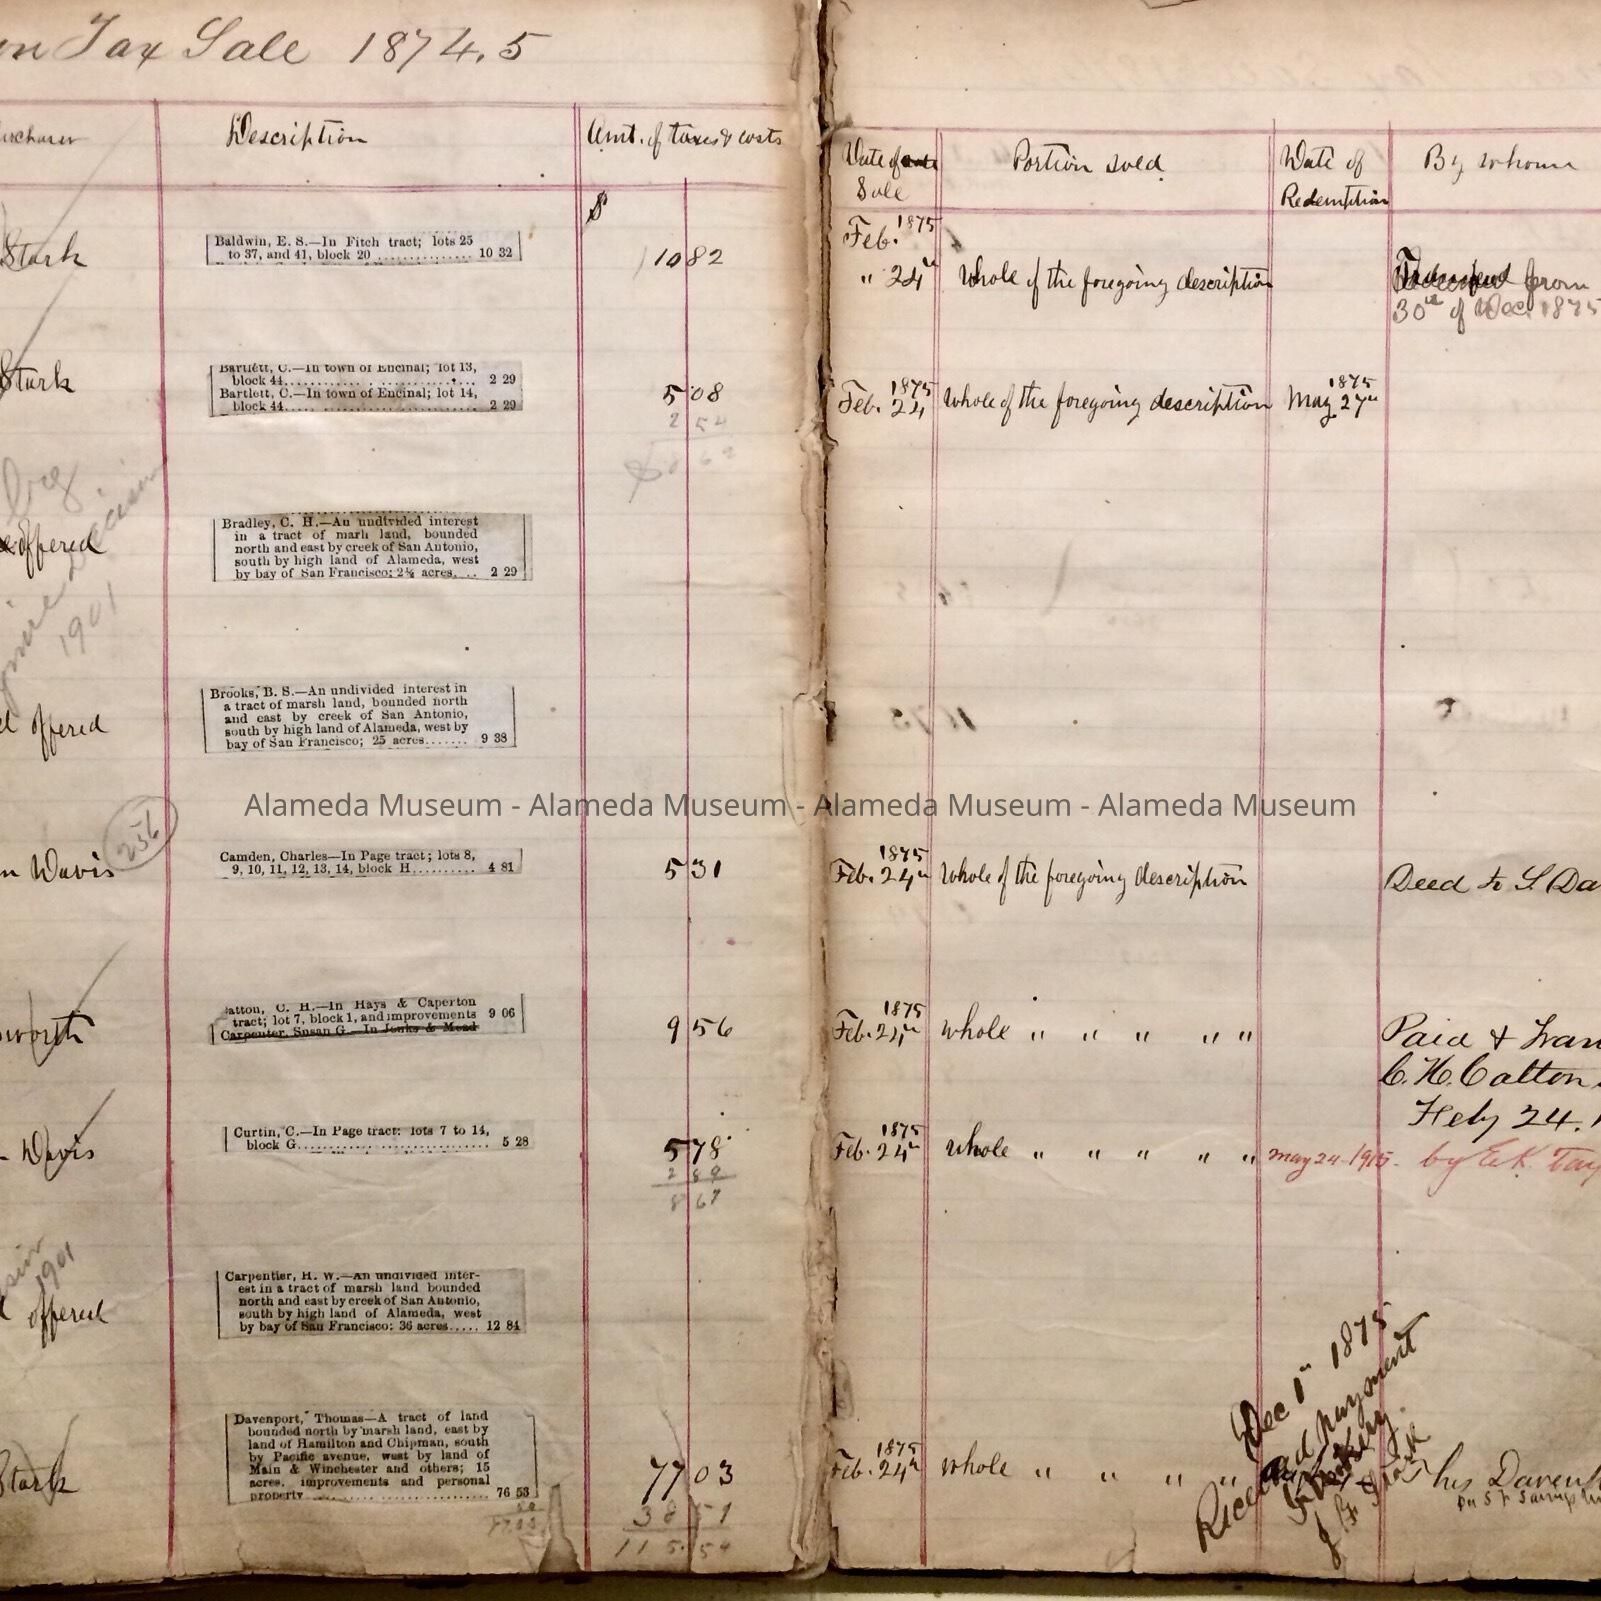 Tax Sale 1874.5
Description
Amt. of taxes & costs
Date of
Sale
Portion sold
Date of
Redemption
By whom
$
Stark
Baldwin, E. S.—In Fitch tract; lots 25
to 37, and 41, block 20 .............. 10 32
10 82
1875
Feb.
" 24th whole of the foregoing description
from
30th of Dec. 1875
Stark
Bartlett, C.—In town of Encinal; lot 13,
block 44............................ 2 29
Bartlett, C.—In town of Encinal; lot 14,
block 44............................ 2 29
5 08
2 54
1875
Feb. 24 whole of the foregoing description
1875
May 27th
offered
1901
Bradley, C. H.—An undivided interest
in a tract of marh land, bounded
north and east by creek of San Antonio,
south by high land of Alameda, west
by bay of San Francisco; 2½ acres. .. 2 29
offered
Brooks, B. S.—An undivided interest in
a tract of marsh land, bounded north
and east by creek of San Antonio,
south by high land of Alameda, west by
bay of San Francisco; 25 acres....... 9 38
Alameda Museum - Alameda Museum - Alameda Museum - Alameda Museum
256
Davis
Camden, Charles—In Page tract; lots 8,
9, 10, 11, 12, 13, 14, block H.......... 4 81
5 31
1875
Feb. 24th whole of the foregoing description
Deed to S. Da
worth
atton, C. H.—In Hays & Caperton
tract; lot 7, block 1, and improvements 9 06
Carpenter, Susan G.—In Jenks & Mead
9 56
1875
Feb. 24th whole " " " " "
Paid & tran
C. H. Catton
Feby 24.
Davis
Curtin, C.—In Page tract: lots 7 to 14,
block G.............................. 5 28
5 78
2 89
8 67
1875
Feb. 24th whole " " " " "
May 24 - 1915.
by E.K. Tay
1901
offered
Carpentier, H. W.—An undivided inter-
est in a tract of marsh land bounded
north and east by creek of San Antonio,
south by high land of Alameda, west
by bay of San Francisco; 36 acres..... 12 84
Stark
Davenport, Thomas—A tract of land
bounded north by marsh land, east by
land of Hamilton and Chipman, south
by Pacific avenue, west by land of
Main & Winchester and others; 15
acres, improvements and personal
property ........................... 76 53
77 03
38 51
115 54
1875
Feb. 24th whole " " " "
Dec 1st 1875
Received payment
Stark